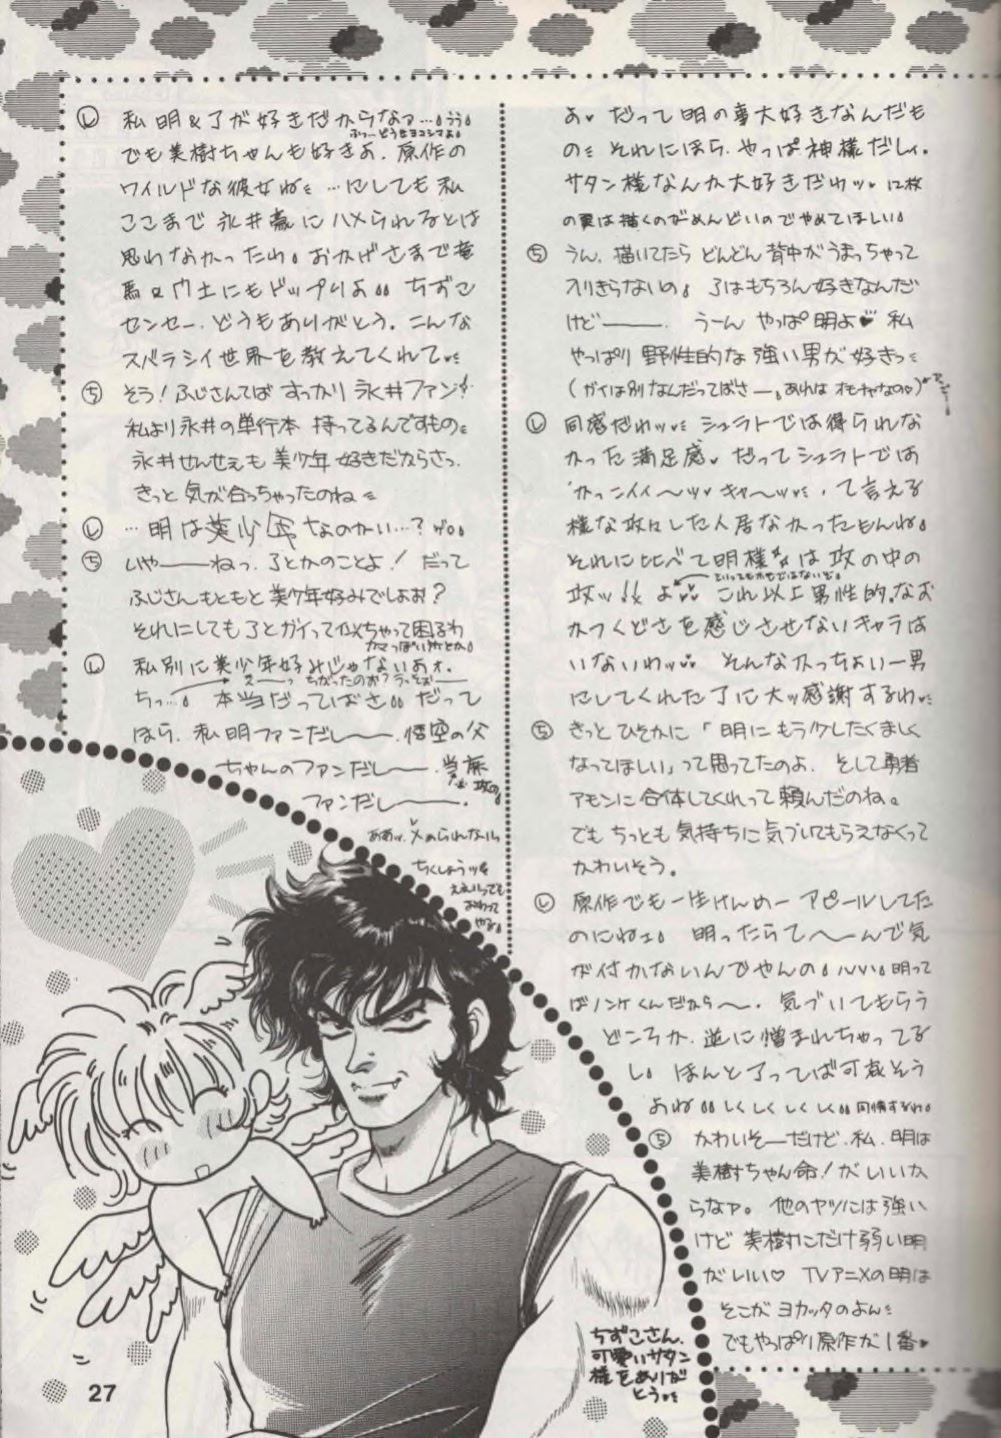 ㋛ 私 明&了が好きだからなァ…。うう。
ふっ…どうせヨコシマよ。
でも美樹ちゃんも好きよ。原作の
ワイルドな彼女ね …にしても私
ここまで 永井豪に ハメられるとは
思わなかったわ。おかげさまで竜
馬&ウ士にもドップリよ。ちずこ
センセー、どうもありがとう。こんな
スバラシイ世界を教えてくれて
㋠ そう!ふじさんてば すっかり 永井ファン!
私より永井の単行本 持ってるんですもの
永井せんせえも 美少年 好きだからさっ、
きっと 気が合っちゃったのね
㋛ …明は美少年なのかい…?
㋠ いや――ねっ、了とかのことよ! だって
ふじさんもともと 美少年好みでしょお?
それにしても 了とガイって似ちゃって困るわ
㋛ 私別に美少年好みじゃないよォ。
え――っ ちがったのォ?うっそォ――
ちっ…。本当だってばさ。だって
ほら、私明ファンだし――、悟空の父
ちゃんのファンだし――、当麻
ファンだし――。
ちくしょうッ
ええいっても
おわって
やる。
よ だって 明の事大好きなんだも
の それにほら、やっぱ神様だしィ。
サタン様なんか大好きだわッ 12枚
の翼は描くのがめんどいのでやめてほしい。
㋠ うん、描いてたら どんどん 背中がうまっちゃって
入りきらないの。了はもちろん好きなんだ
けど――。うーん やっぱ 明よ 私
やっぱり 野性的な 強い男が 好きっ
(ガイは別なんだってばさー。あれは オモチャなの)
㋛ 同感だわッ シュラトでは得られな
かった満足感。だってシュラトでは
"かっこイイ〜ッ キャ〜ッ"、て言える
様な攻めした人居なかったもんね。
それに比べて明様は攻の中の
といってもホモではないぞ。
攻ッ!! よ これ以上 男性的、なお
かつくどさを感じさせないキャラは
いないわッ そんなかっちょいー男
にしてくれた了に大ッ感謝するわ
㋠ きっと ひそかに 「明に もう少したくましく
なってほしい」って思ってたのよ。そして勇者
アモンに合体してくれって頼んだのね。
でも ちっとも 気持ちに気づいてもらえなくって
かわいそう。
㋛ 原作でも一生けんめー アピールしてた
のにねェ。明ったらて〜んで気
が付かないんでやんの。明って
ばノンケくんだから〜。気づいてもらう
どころか、逆に憎まれちゃってる
し。ほんと了ってば可哀そう
よね しくしくしくしく 同情するわ。
㋠ かわいそーだけど、私、明は
美樹ちゃん命!がいいか
らなァ。他のヤツには強い
けど 美樹にだけ弱い明
がいい♡ TVアニメの明は
そこが ヨカッタのよん
でもやっぱり原作が1番
ちずこさん、
可愛いサタン
様をありが
とう
27